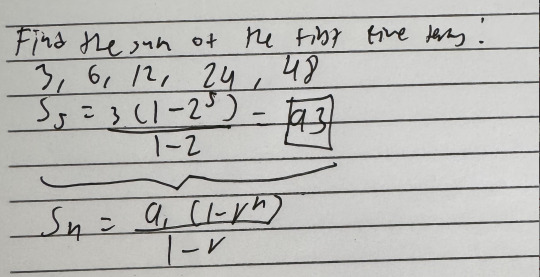 Find the sum of the first five terms:
3, 6, 12, 24, 48
S₅ = 3 (1 - 2⁵) / 1 - 2 = 93
Sₙ = a₁ (1 - rⁿ) / 1 - r